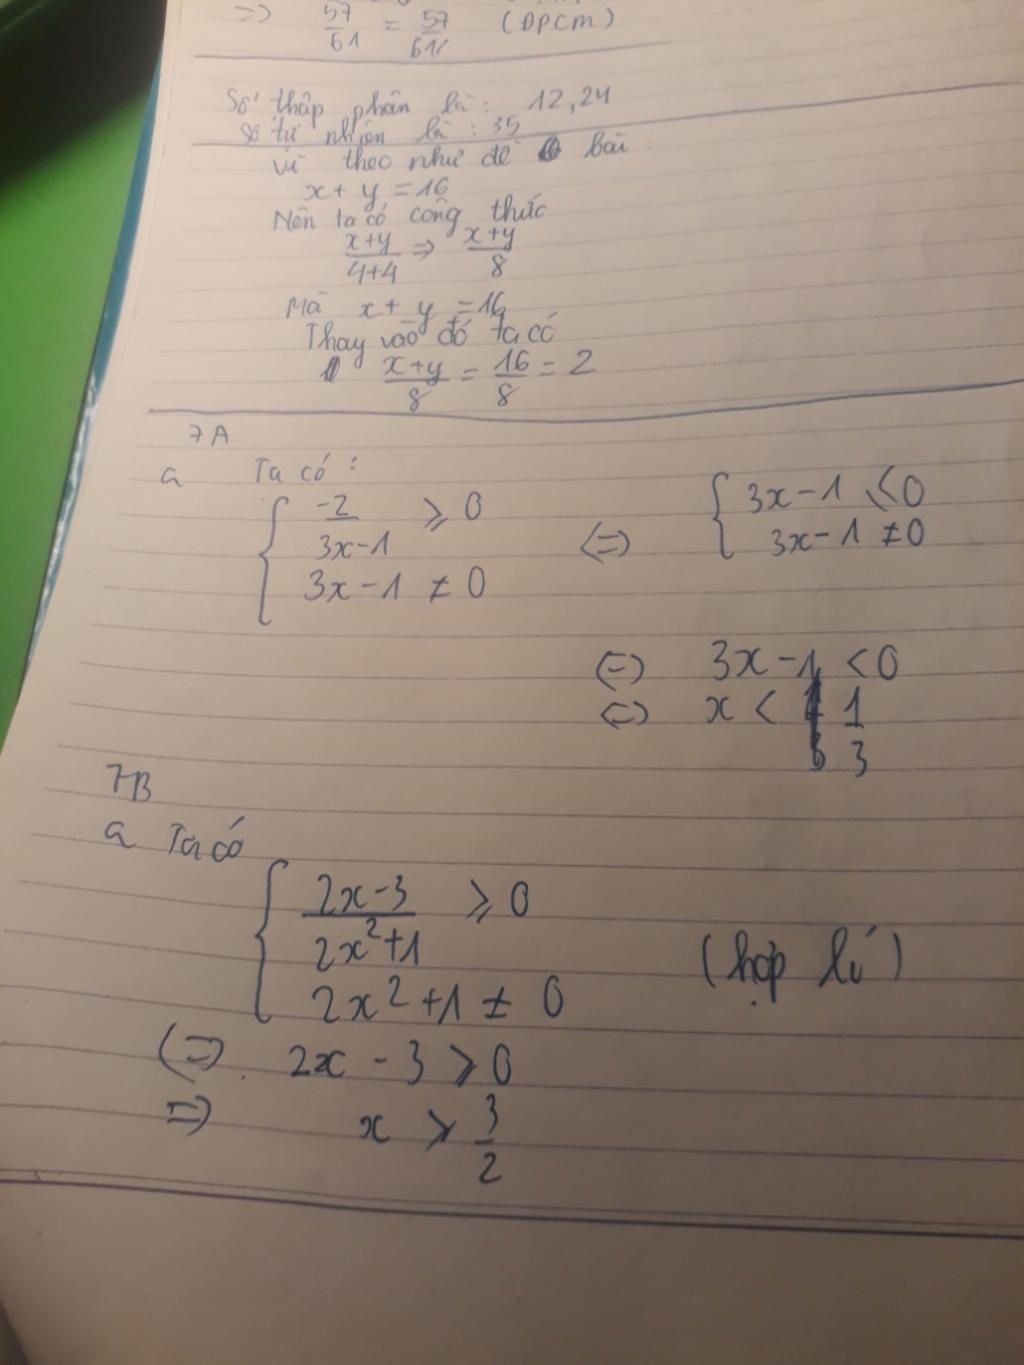 => 57/61 = 57/61 (ĐPCM)
Số thập phân là : 12,24
Số tự nhiên là : 35
Vì theo như đề bài :
x + y = 16
Nên ta có công thức
x+y/4+4 => x+y/8
Mà x + y = 16
Thay vào đó ta có
x+y/8 = 16/8 = 2
7A
a Ta có :
{ -2/3x-1 ⩾ 0 <=> { 3x-1 ⩽ 0
3x-1 ≠ 0 3x-1 ≠ 0
<=> 3x-1 < 0
<=> x < 1/3
7B
a Ta có
{ 2x-3/2x²+1 ⩾ 0
2x²+1 ≠ 0 (hợp lí)
<=> 2x - 3 ⩾ 0
=> x ⩾ 3/2